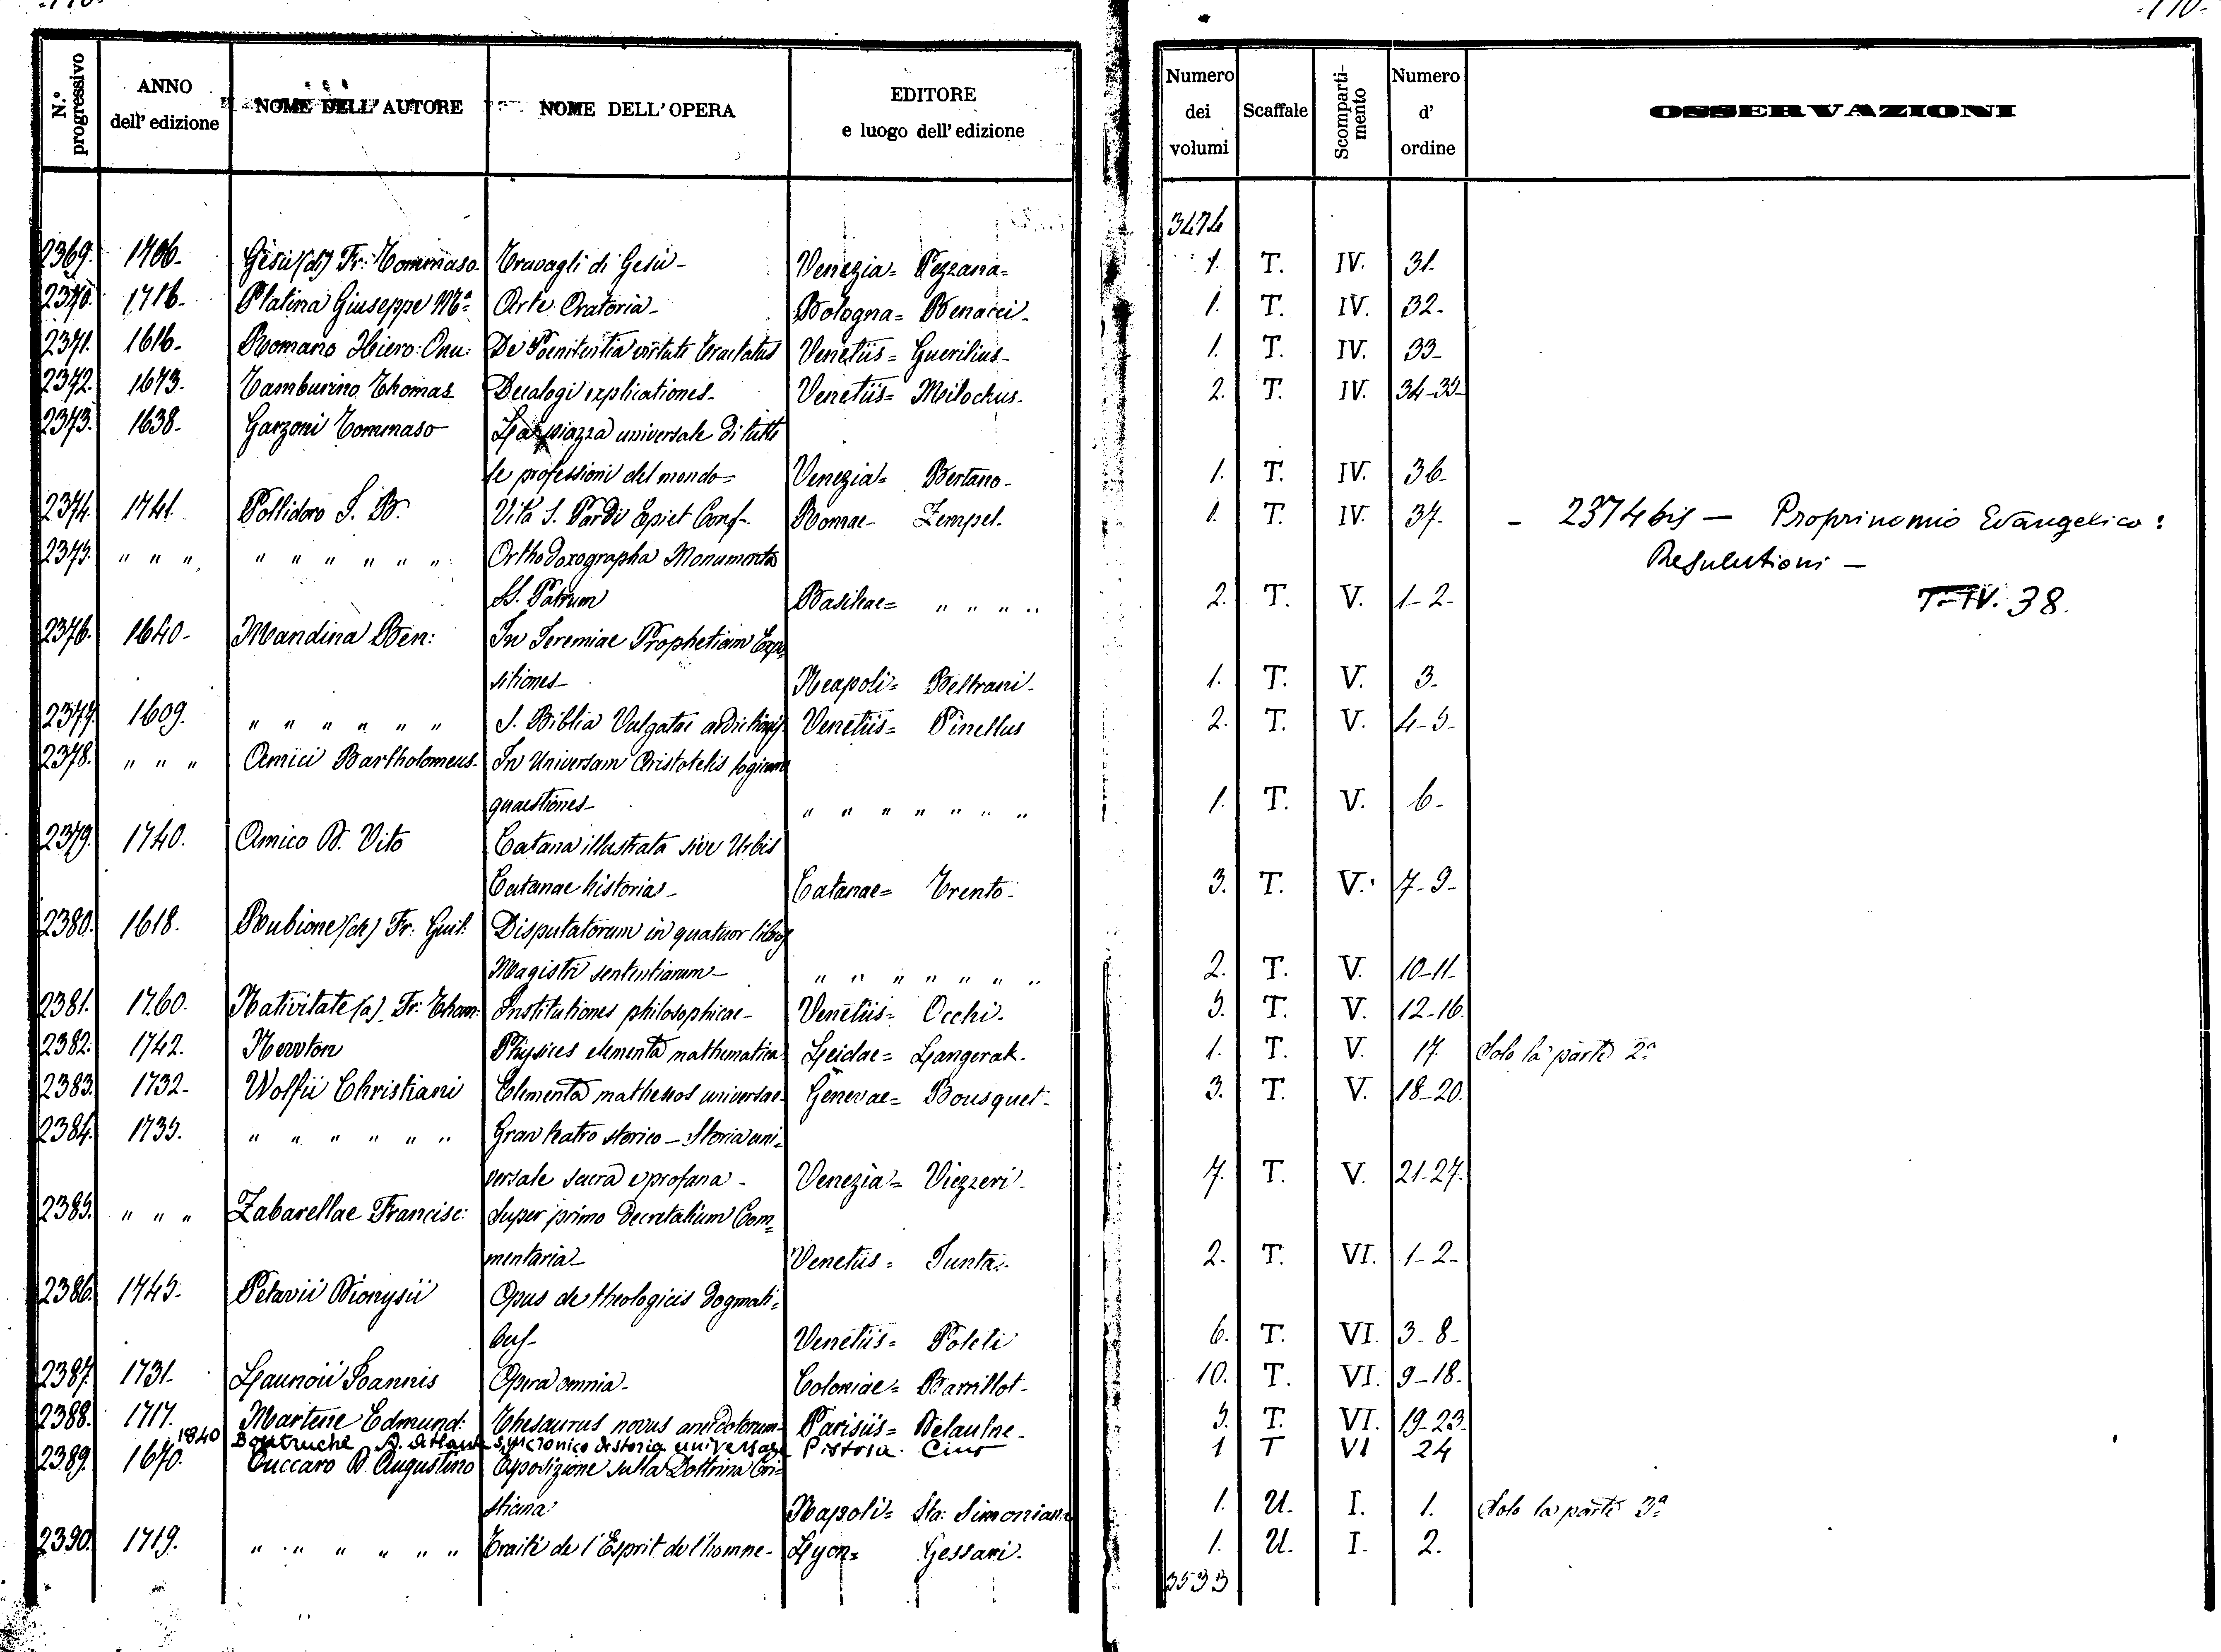 N.° progressivo | ANNO dell' edizione | NOME DELL' AUTORE | NOME DELL' OPERA | EDITORE e luogo dell' edizione | Numero dei volumi | Scaffale | Scomparti-mento | Numero d' ordine | OSSERVAZIONI
3474
2369. 1706. Gesù (di) Fr: Tommaso. Travagli di Gesù - Venezia = Pezzana = 1. T. IV. 31.
2370. 1716. Platina Giuseppe Ma. Arte Oratoria - Bologna = Benacci - 1. T. IV. 32-
2371. 1616. Romano Hiero: Onu: De Poenitentia virtute Tractatus Venetiis = Guerilius - 1. T. IV. 33-
2372. 1673. Tamburino Thomas Decalogi explicationes - Venetiis = Milochus - 2. T. IV. 34-35-
2373. 1638. Garzoni Tommaso La piazza universale di tutte
le professioni del mondo = Venezia = Bertano - 1. T. IV. 36-
2374. 1741. Pollidoro S. B. Vita S. Pardi Epict Conf - Romae - Zempel - 1. T. IV. 37. - 2374 bis — Proprinomio Evangelico:
2375. " " " " " " " " " Orthodoxographa Monumenta Resulutioni —
SS. Patrum Basileae = " " " " 2. T. V. 1-2- T-IV. 38.
2376. 1640- Mandina Ben: In Jeremiae Prophetiam Expo
sitiones - Neapoli = Beltrani - 1. T. V. 3-
2377. 1609. " " " " " " S. Biblia Vulgatae aeditionis Venetiis = Pinellus 2. T. V. 4-5-
2378. " " " Amici Bartholomeus - In Universam Aristotelis logicam
quaestiones - " " " " " " " 1. T. V. 6-
2379. 1740. Amico D. Vito Catana illustrata sive Urbis
Catanae historia - Catanae = Trento - 3. T. V. 7-9-
2380. 1618. Rubione (de) Fr: Guil: Disputatorum in quatuor libros
Magistri sententiarum - " " " " " " " 2. T. V. 10-11-
2381. 1760. Nativitate (a) Fr: Thom: Institutiones philosophicae - Venetiis = Occhi - 5. T. V. 12-16.
2382. 1742. Newton Physices elementa mathematica Leidae = Langerak - 1. T. V. 17. Solo la parte 2a
2383. 1732- Wolfii Christiani Elementa matheseos universae Genevae = Bousquet - 3. T. V. 18-20.
2384. 1735. " " " " " " Gran teatro storico - Storia uni=
versale sacra e profana - Venezia = Viezzeri - 7. T. V. 21-27.
2385. " " " Zabarellae Francisc: Super primo Decretalium Com=
mentaria - Venetiis = Junta - 2. T. VI. 1-2-
2386. 1745- Petavii Dionysii Opus de theologicis dogmati=
bus - Venetiis = Poleti 6. T. VI. 3-8-
2387. 1731. Launoii Joannis Opera omnia - Coloniae = Barrillot - 10. T. VI. 9-18-
2388. 1717. Martene Edmund: Thesaurus novus anecdotorum Parisiis = Delaulne - 5. T. VI. 19-23
1840 Boutruche D. Atlante sincronico di storia universale Pistoia. Cino 1 T VI 24
2389. 1670. Cuccaro D. Augustino Esposizione sulla Dottrina Cri=
stiana Napoli = Sta: Simoniana 1. U. I. 1. Solo la parte 3a
2390. 1719. " " " " " " Traité de l'Esprit de l'homme - Lyon = Gessari - 1. U. I. 2.
3533